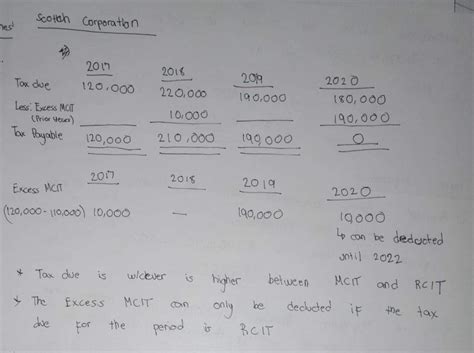 Scottah Corporation
2017 2018 2019 2020
Tax due 120,000 220,000 190,000 180,000
Less: Excess MCIT (Prior Years) 10,000 190,000
Tax Payable 120,000 210,000 190,000 0
Excess MCIT 2017 2018 2019 2020
(120,000-110,000) 10,000 — 190,000 10,000
↳ can be deducted
until 2022
* Tax due is w/c ever is higher between MCIT and RCIT
* The Excess MCIT can only be deducted if the tax
due for the period is RCIT